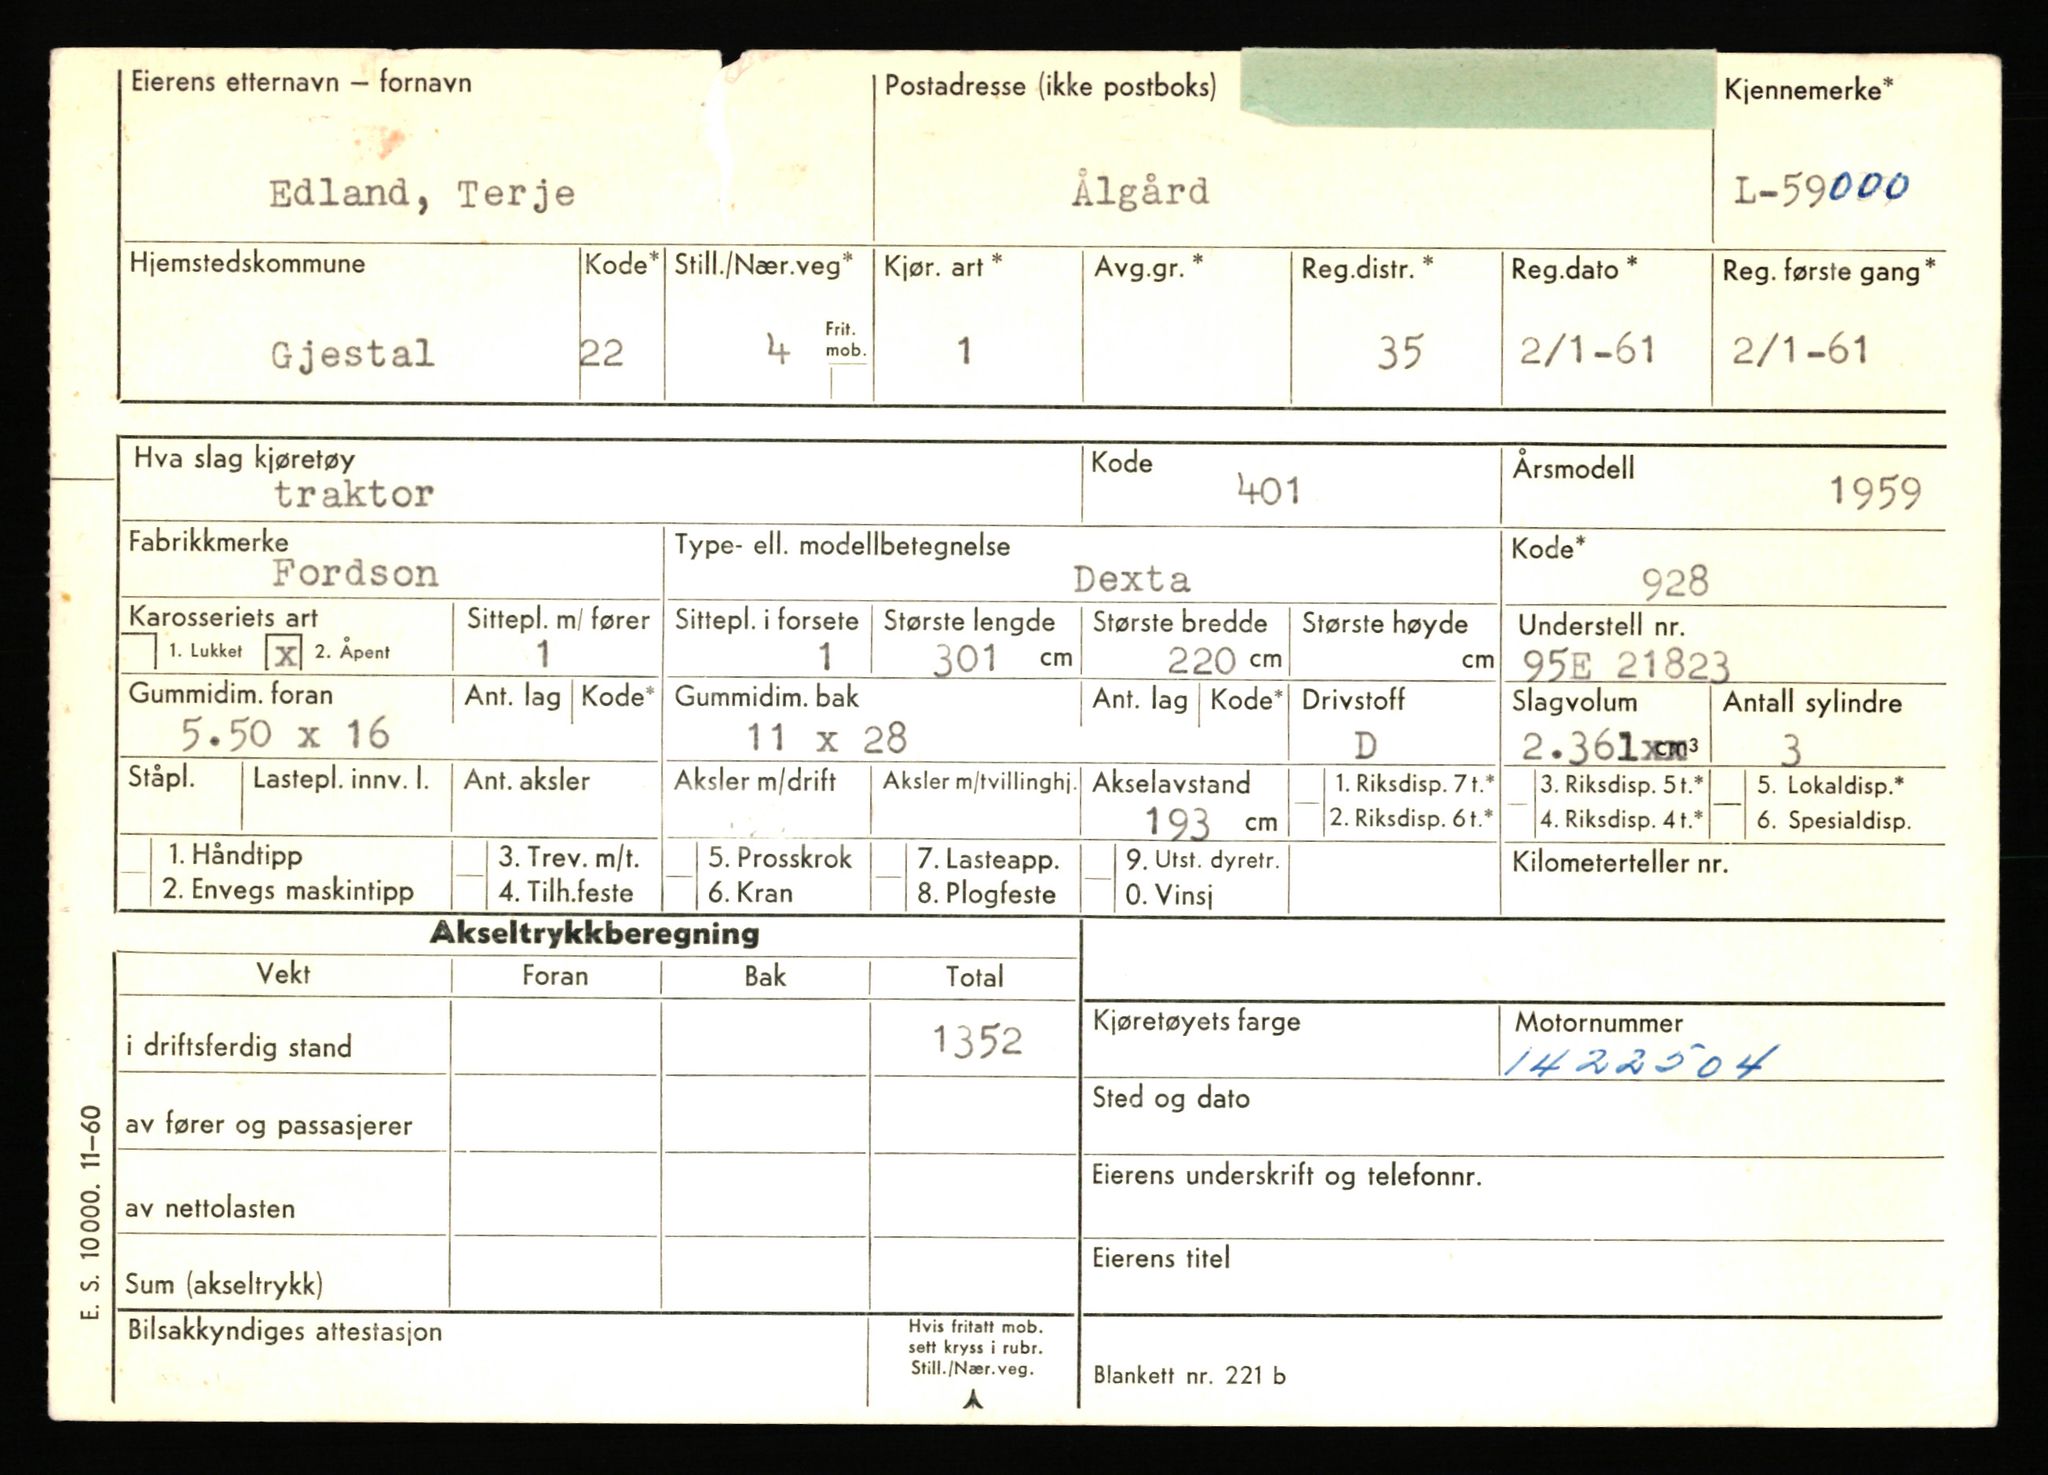 Eierens etternavn — fornavn Postadresse (ikke postboks) Kjennemerke*
Edland, Terje Ålgård L-59000
Hjemstedskommune Kode* Still./Nær.veg* Kjør. art* Avg.gr.* Reg.distr.* Reg.dato* Reg. første gang*
Gjestal 22 4 Frit. mob. 1 35 2/1-61 2/1-61
Hva slag kjøretøy Kode Årsmodell
traktor 401 1959
Fabrikkmerke Type- ell. modellbetegnelse Kode*
Fordson Dexta 928
Karosseriets art Sittepl. m/ fører Sittepl. i forsete Største lengde Største bredde Største høyde Understell nr.
1. Lukket x 2. Åpent 1 1 301 cm 220 cm cm 95E 21823
Gummidim. foran Ant. lag Kode* Gummidim. bak Ant. lag Kode* Drivstoff Slagvolum Antall sylindre
5.50 x 16 11 x 28 D 2.361 cm³ 3
Ståpl. Lastepl. innv. l. Ant. aksler Aksler m/drift Aksler m/tvillinghj. Akselavstand 1. Riksdisp. 7 t.* 3. Riksdisp. 5 t.* 5. Lokaldisp.*
193 cm 2. Riksdisp. 6 t.* 4. Riksdisp. 4 t.* 6. Spesialdisp.
1. Håndtipp 3. Trev. m/t. 5. Prosskrok 7. Lasteapp. 9. Utst. dyretr. Kilometerteller nr.
2. Envegs maskintipp 4. Tilh.feste 6. Kran 8. Plogfeste 0. Vinsj
Akseltrykkberegning
Vekt Foran Bak Total
i driftsferdig stand 1352
Kjøretøyets farge Motornummer
1422504
av fører og passasjerer
Sted og dato
av nettolasten
Eierens underskrift og telefonnr.
Sum (akseltrykk)
Eierens titel
Bilsakkyndiges attestasjon
Hvis fritatt mob.
sett kryss i rubr.
Still./Nær.veg.
Blankett nr. 221 b
E. S. 10000. 11–60